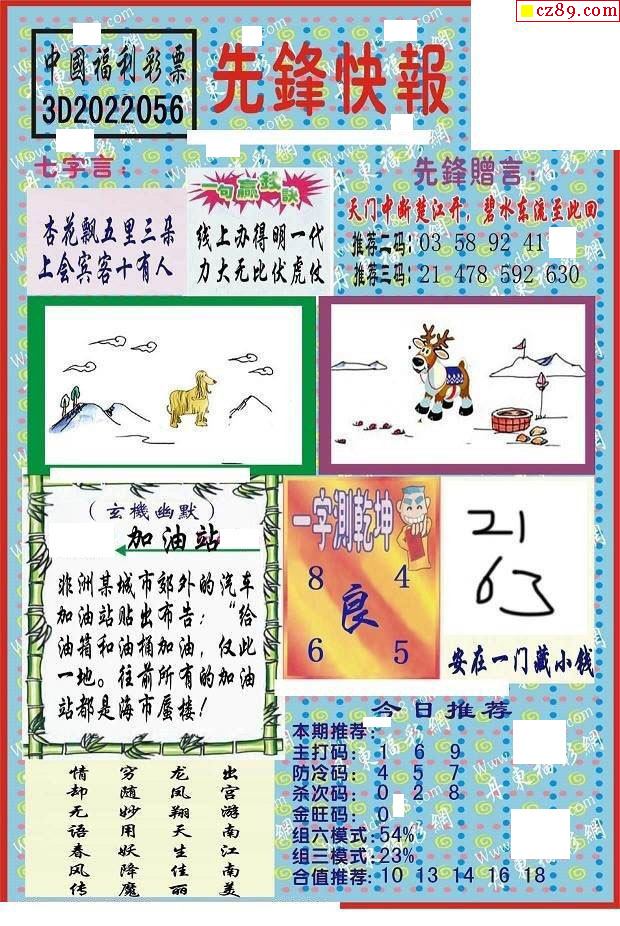 cz89.com
中國福利彩票
3D2022056
先鋒快報
七字言：
杏花飘五里三朵
上会宾客十有人
一句赢钱訣
线上办得明一代
力大无比伏虎仗
先鋒贈言：
天门中断楚江开，碧水东流至此回
推荐二码: 03 58 92 41
推荐三码: 21 478 592 630
（玄機幽默）
加油站
非洲某城市郊外的汽车
加油站贴出布告：“给
油箱和油桶加油，仅此
一地。往前所有的加油
站都是海市蜃楼！
一字測乾坤
8 4
良
6 5
21
63
安在一门藏小钱
情 穷 龙 出
却 随 凤 宫
无 妙 翔 游
语 用 天 南
春 妖 生 江
风 降 佳 南
传 魔 丽 美
今日推荐
本期推荐:
主打码: 1 6 9
防冷码: 4 5 7
杀次码: 0 2 8
金旺码: 0
组六模式:54%
组三模式:23%
合值推荐: 10 13 14 16 18